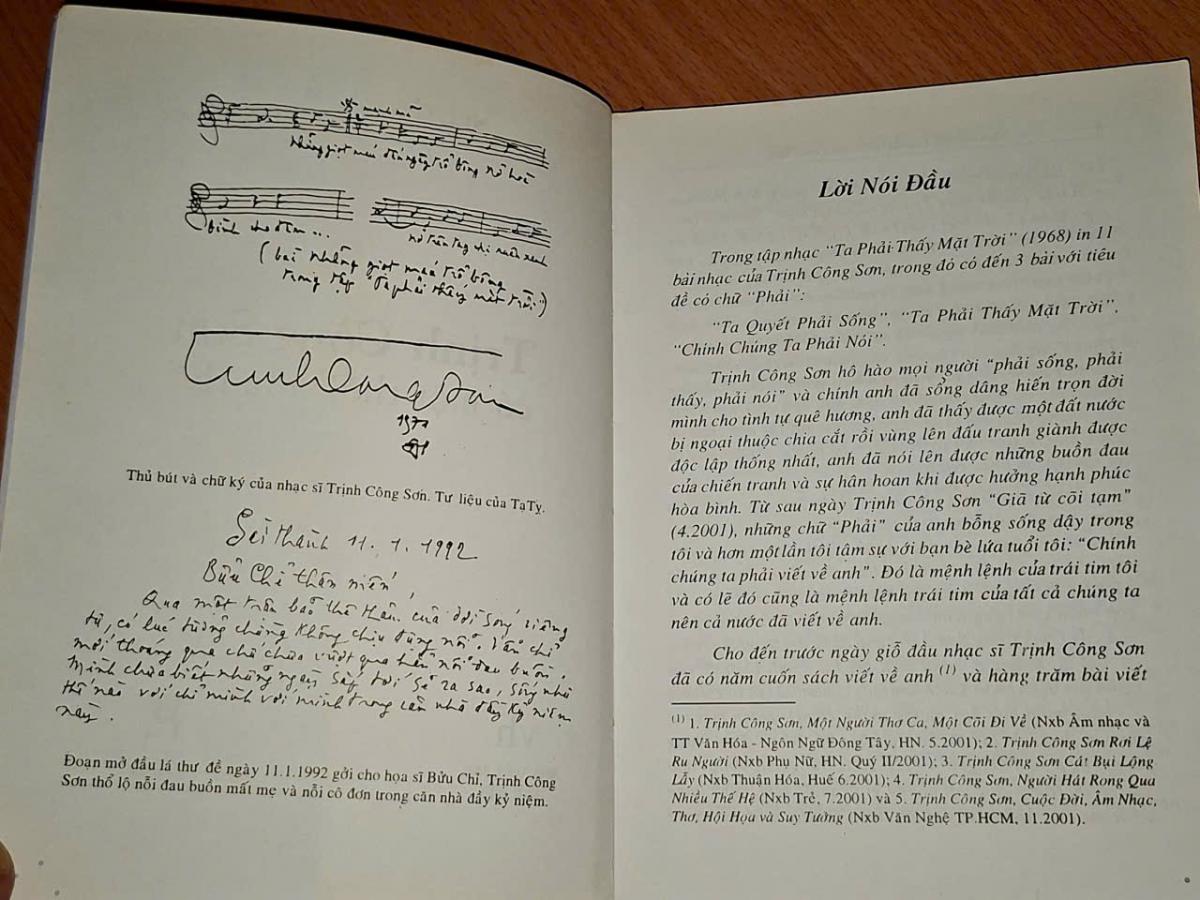 mạnh mẽ
Những giọt máu đã ngây trổ bông nở hoà
bình cho đêm ... nở trên tay chị xuân xanh
(bài những giọt máu trổ bông
trong tập "Ta phải thấy mặt trời")
Trinh Cong Son
197
Thủ bút và chữ ký của nhạc sĩ Trịnh Công Sơn. Tư liệu của TạTỵ.
Sài thành 11.1.1992
Bửu Chỉ thân mến,
Qua một trận bão thê thảm của đời sống riêng
tư, có lúc tưởng chừng không chịu đựng nổi. Vẫn chỉ
mới thoáng qua chứ chưa vượt qua hẳn nỗi đau buồn.
Mình chưa biết những ngày sắp tới sẽ ra sao, sống như
thế nào với chỉ mình với mình trong căn nhà đầy kỷ niệm
này.
Đoạn mở đầu lá thư đề ngày 11.1.1992 gởi cho họa sĩ Bửu Chỉ, Trịnh Công
Sơn thổ lộ nỗi đau buồn mất mẹ và nỗi cô đơn trong căn nhà đầy kỷ niệm.
Lời Nói Đầu
Trong tập nhạc "Ta Phải Thấy Mặt Trời" (1968) in 11
bài nhạc của Trịnh Công Sơn, trong đó có đến 3 bài với tiêu
đề có chữ "Phải":
"Ta Quyết Phải Sống", "Ta Phải Thấy Mặt Trời",
"Chính Chúng Ta Phải Nói".
Trịnh Công Sơn hô hào mọi người "phải sống, phải
thấy, phải nói" và chính anh đã sống dâng hiến trọn đời
mình cho tình tự quê hương, anh đã thấy được một đất nước
bị ngoại thuộc chia cắt rồi vùng lên đấu tranh giành được
độc lập thống nhất, anh đã nói lên được những buồn đau
của chiến tranh và sự hân hoan khi được hưởng hạnh phúc
hòa bình. Từ sau ngày Trịnh Công Sơn "Giã từ cõi tạm"
(4.2001), những chữ "Phải" của anh bỗng sống dậy trong
tôi và hơn một lần tôi tâm sự với bạn bè lứa tuổi tôi: "Chính
chúng ta phải viết về anh". Đó là mệnh lệnh của trái tim tôi
và có lẽ đó cũng là mệnh lệnh trái tim của tất cả chúng ta
nên cả nước đã viết về anh.
Cho đến trước ngày giỗ đầu nhạc sĩ Trịnh Công Sơn
đã có năm cuốn sách viết về anh (1) và hàng trăm bài viết
(1) 1. Trịnh Công Sơn, Một Người Thơ Ca, Một Cõi Đi Về (Nxb Âm nhạc và
TT Văn Hóa - Ngôn Ngữ Đông Tây, HN. 5.2001); 2. Trịnh Công Sơn Rơi Lệ
Ru Người (Nxb Phụ Nữ, HN. Quý II/2001); 3. Trịnh Công Sơn Cát Bụi Lộng
Lẫy (Nxb Thuận Hóa, Huế 6.2001); 4. Trịnh Công Sơn, Người Hát Rong Qua
Nhiều Thế Hệ (Nxb Trẻ, 7.2001) và 5. Trịnh Công Sơn, Cuộc Đời, Âm Nhạc,
Thơ, Hội Họa và Suy Tưởng (Nxb Văn Nghệ TP.HCM, 11.2001).